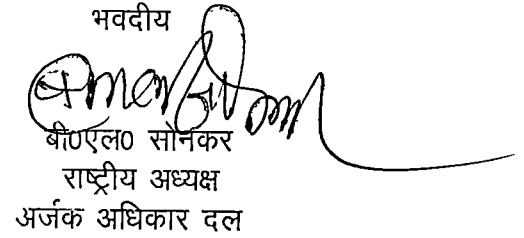 भवदीय
बी0एल0 सोनकर
राष्ट्रीय अध्यक्ष
अर्जक अधिकार दल